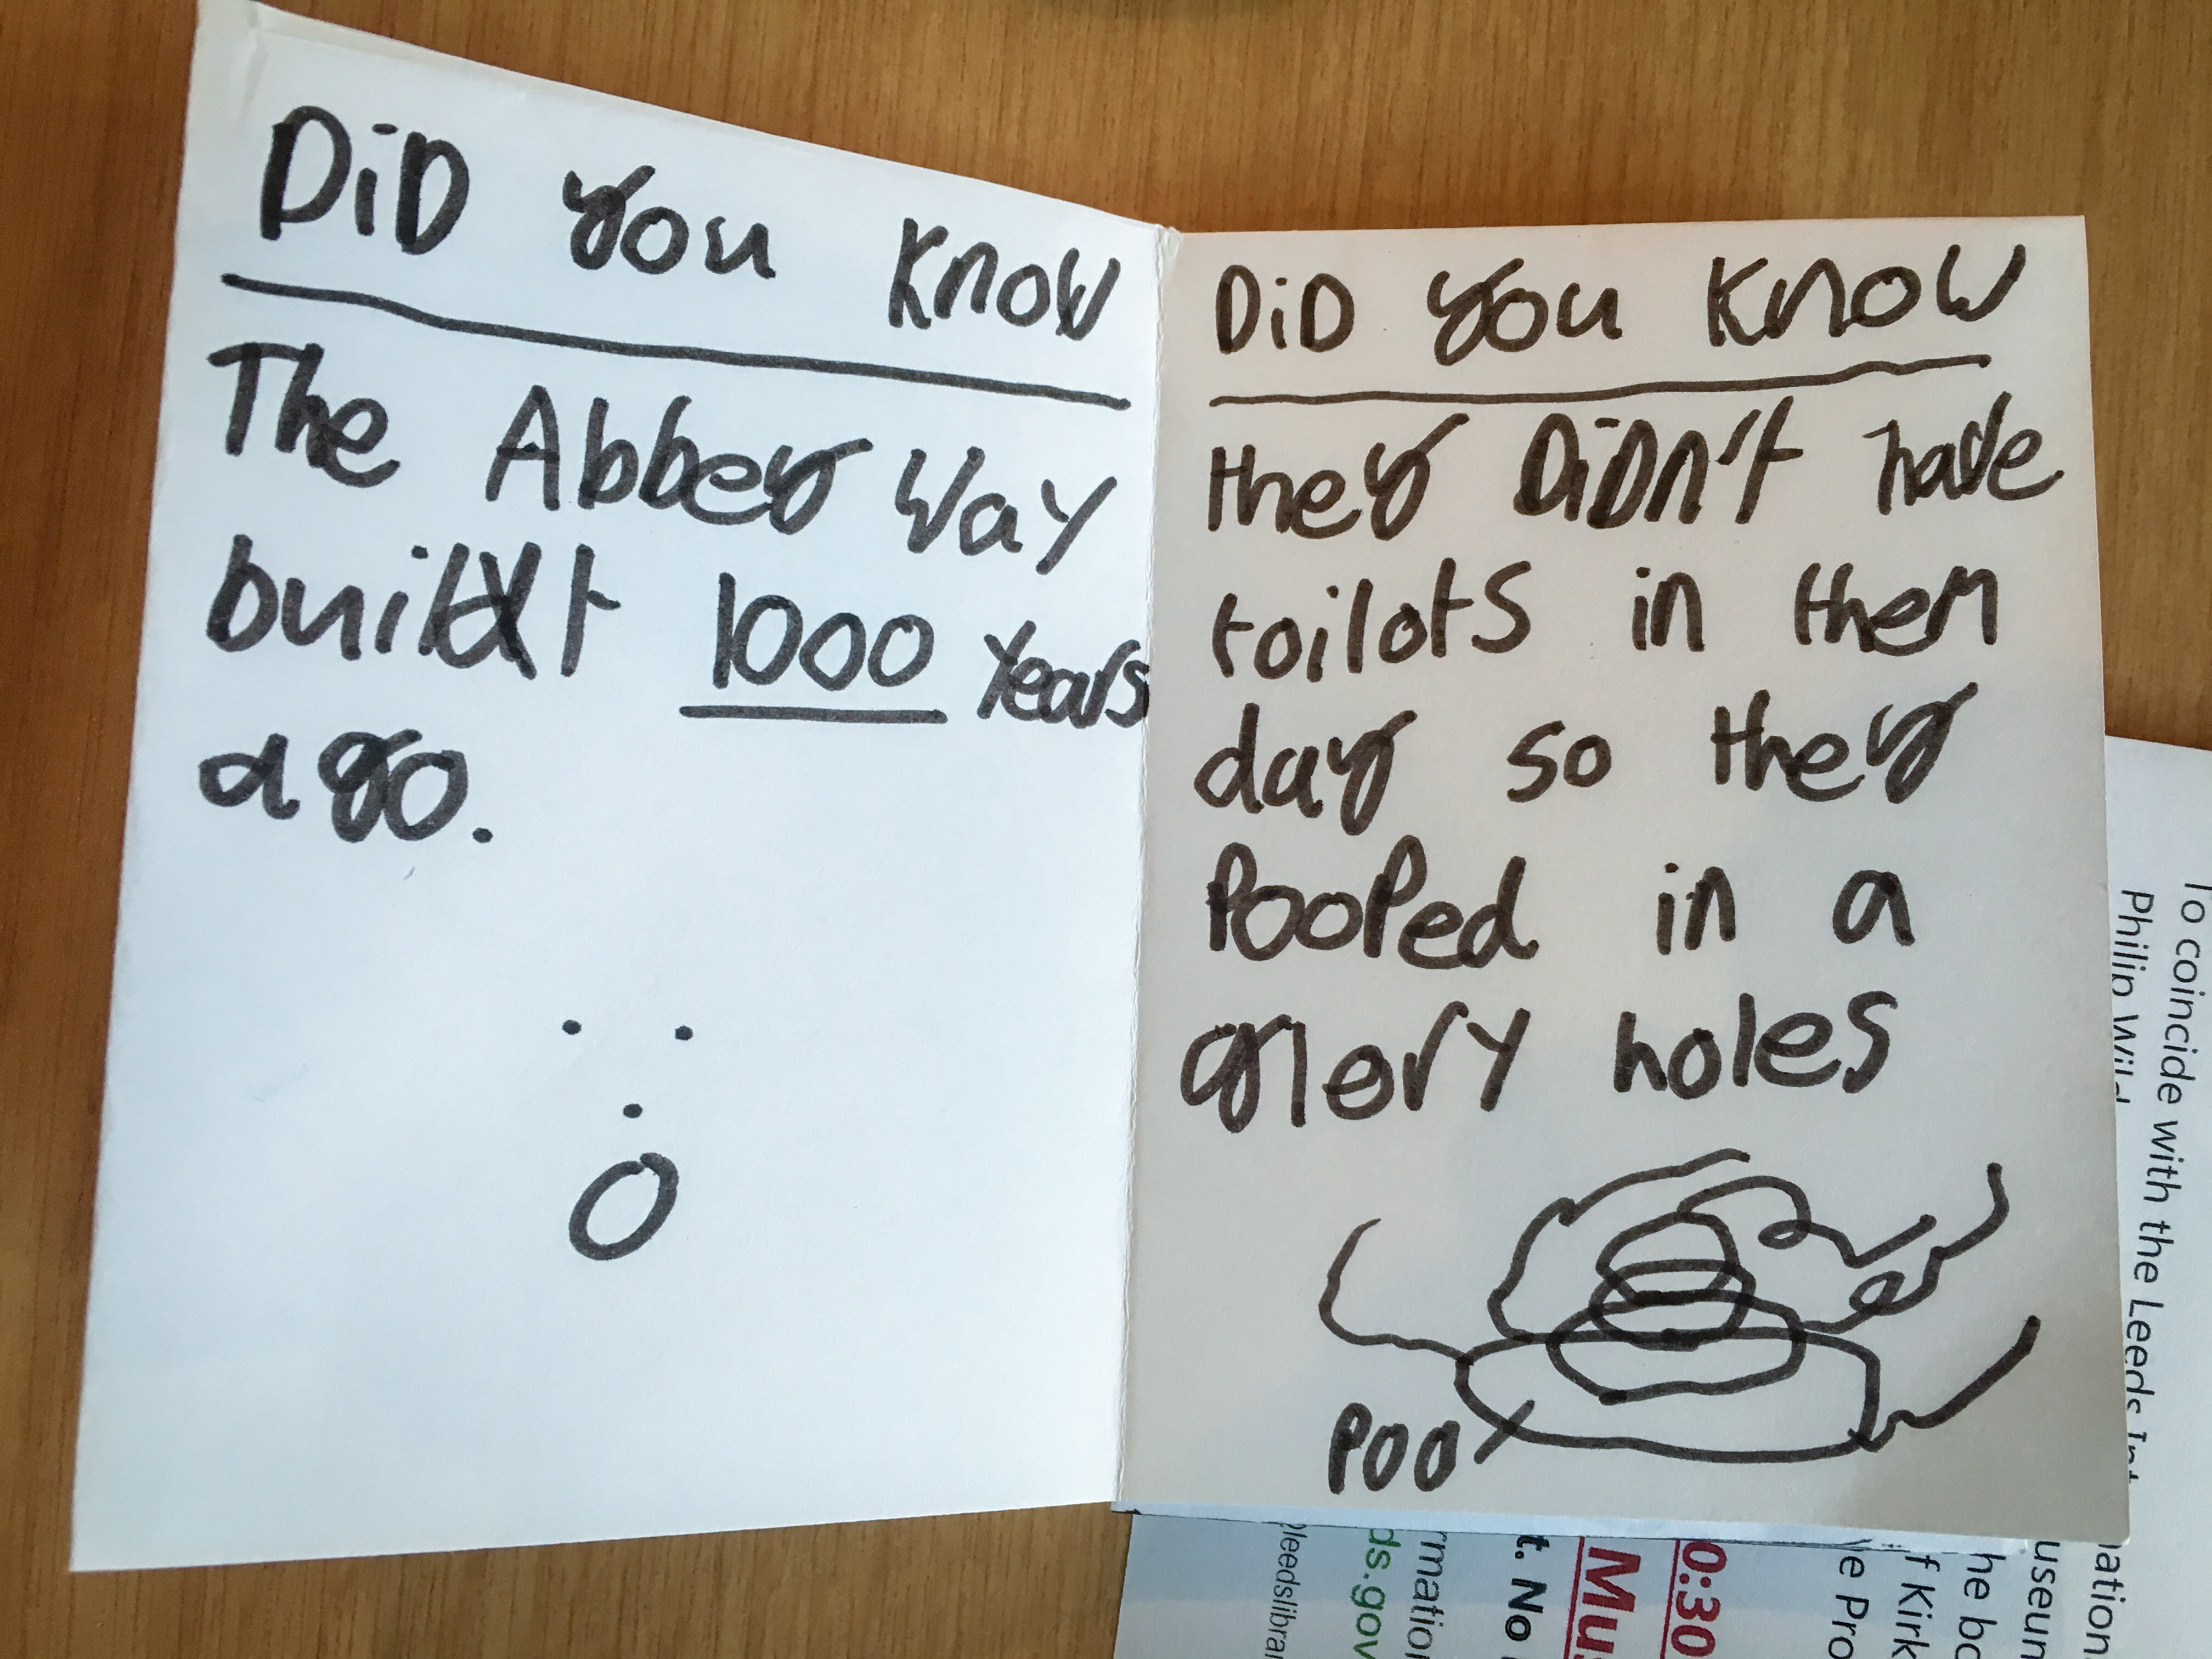 DiD you know
The Abbey Way
buildt 1000 Years
ago.
DiD you know
they DiDn't have
toilots in them
day so they
PooPed in a
glory holes
Poo
To coincide with the Leeds
Philip
ation
useum
he bo
f Kirk
e Pro
0:30
Mus
t. No
rmation
ds.gov
leedslibrar